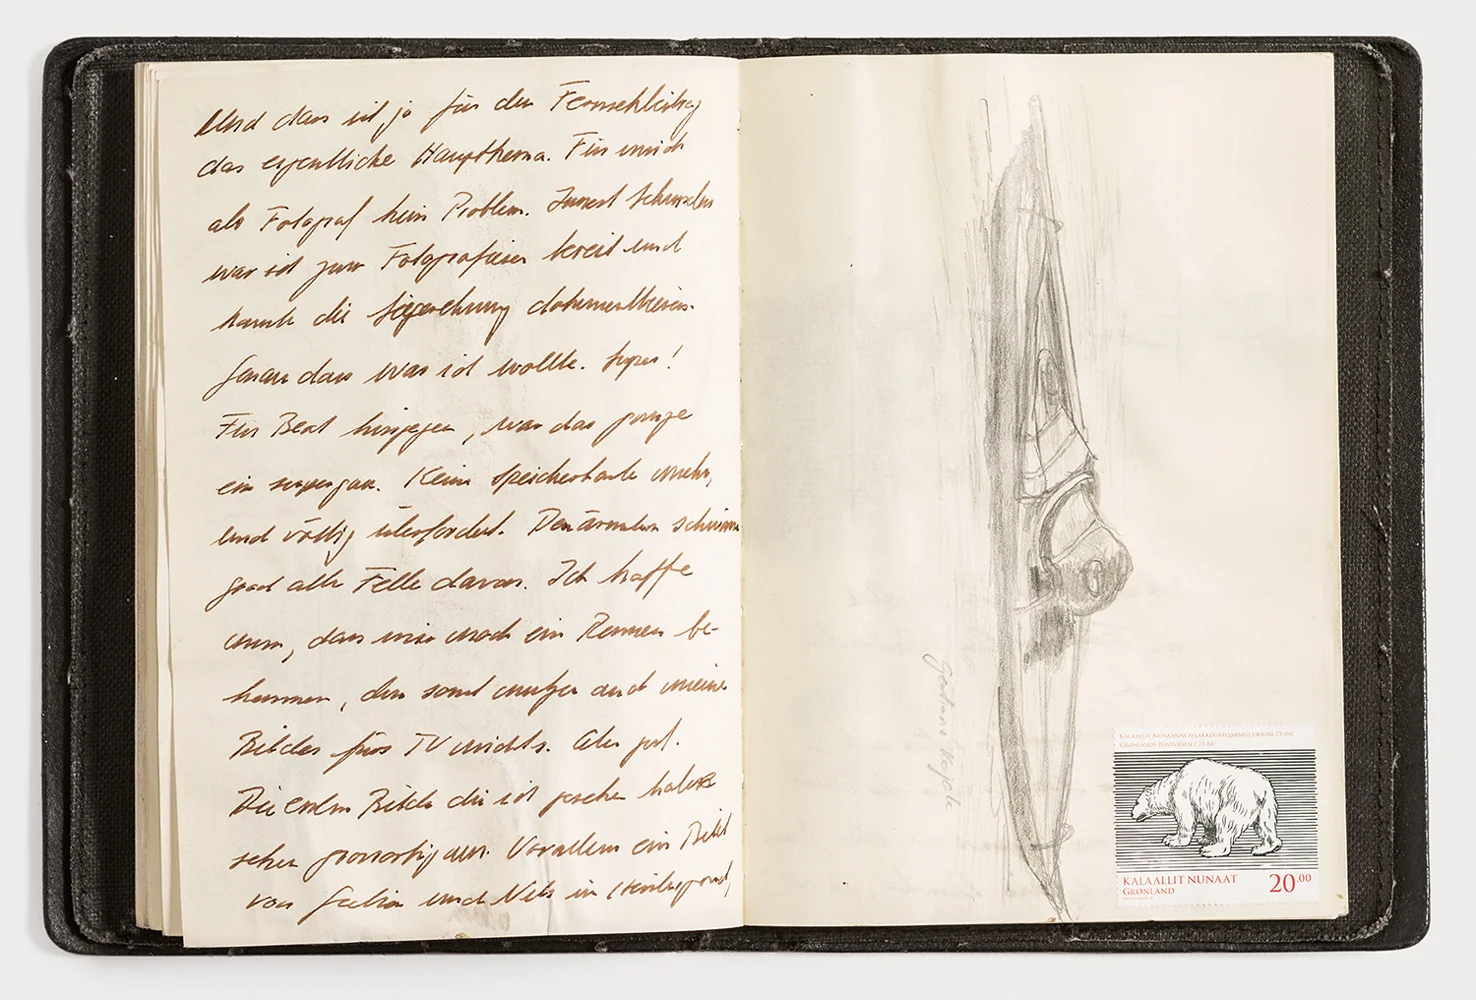 Und das ist ja für den Fernsehbeitrag
das eigentliche Hauptthema. Für mich
als Fotograf kein Problem. Innert Sekunden
war ich zum Fotografieren bereit und
konnte die dokumentieren.
Genau das was ich wollte. Super!
Für Beat hingegen, war das ganze
ein supergau. Keine Speicherkarte mehr,
und völlig überfordert. Den armen schwimm
grad alle Felle davon. Ich hoffe
nun, das wir noch ein Rennen be-
kommen, den sonst nutzen auch meine
Bilder fürs TV nichts. Aber gut.
Die ersten Bilder die ich gesehen habe
sehen grossartig aus. Vorallem ein Bild
von und Nels in
KALAALLIT NUNAANNI ALLAKKERIVEQARNEQ UKIUNI 75-INI
GRØNLANDS POSTVÆSEN I 75 ÅR
KALAALLIT NUNAAT
GRØNLAND
20.00